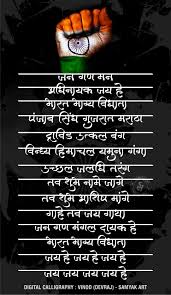 जन गण मन
अधिनायक जय हे
भारत भाग्य विधाता
पंजाब सिंध गुजरात मराठा
द्राविड उत्कल बंग
विन्ध्य हिमाचल यमुना गंगा
उच्छल जलधि तरंग
तव शुभ नामे जागे
तव शुभ आशिष मागे
गाहे तव जय गाथा
जन गण मंगल दायक हे
भारत भाग्य विधाता
जय हे जय हे जय हे
जय जय जय जय हे
DIGITAL CALLIGRAPHY : VINOD (DEVRAJ) - SAMYAK ART